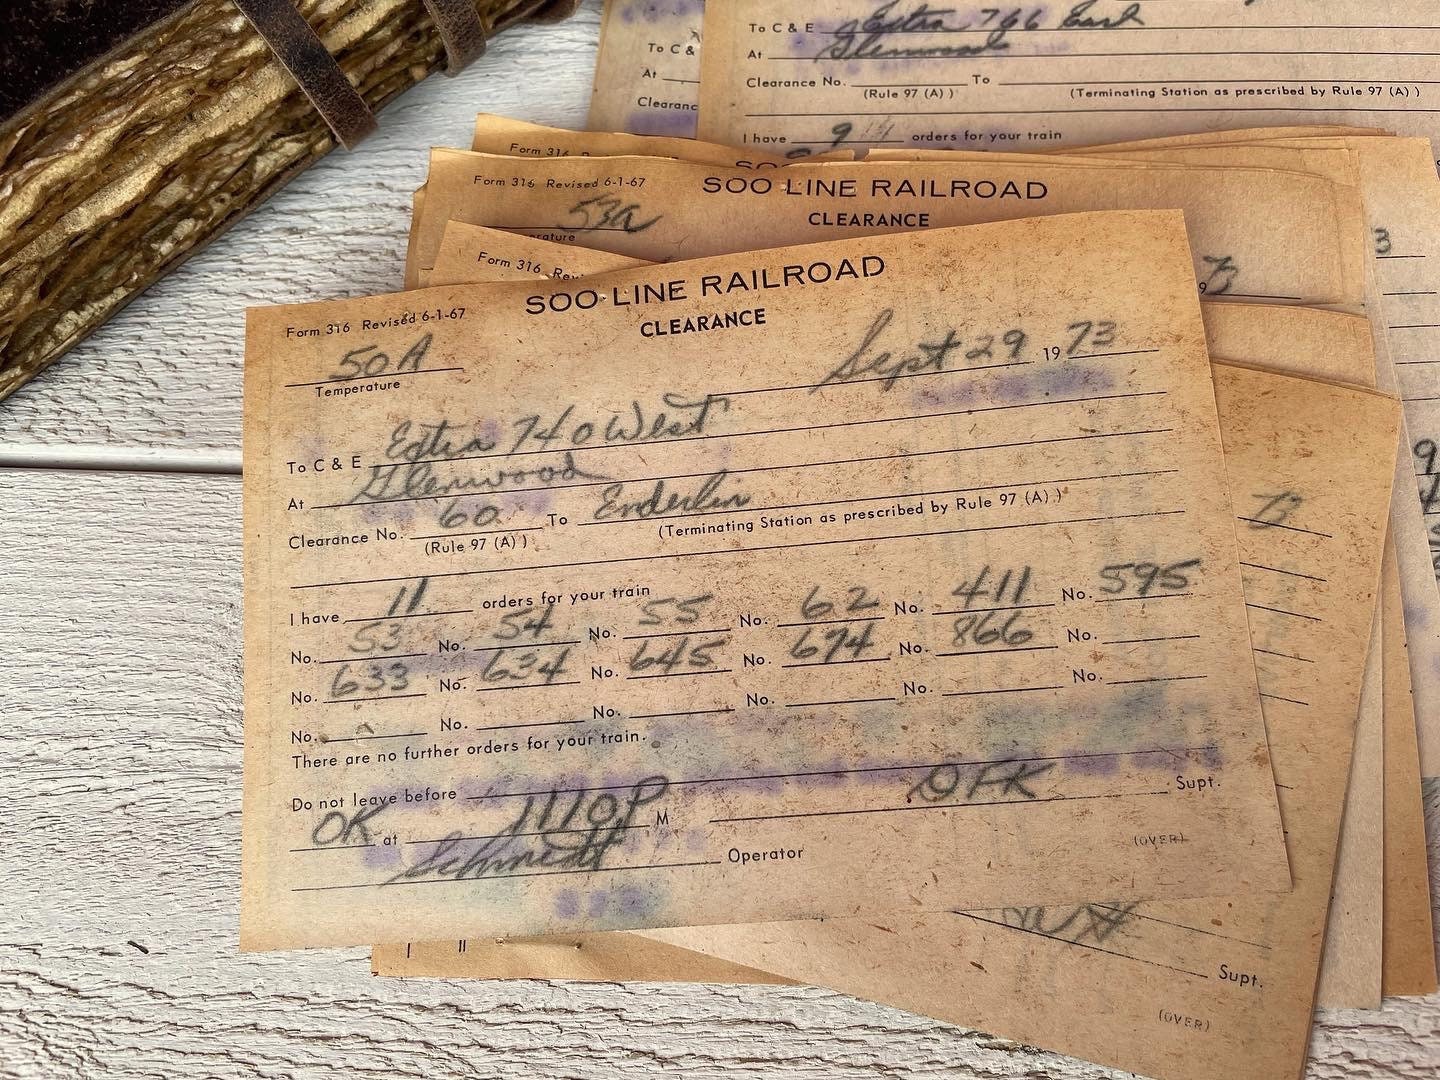 To C & E Extra 766 East
At Glenwood
Clearance No. To
(Rule 97 (A) ) (Terminating Station as prescribed by Rule 97 (A) )
I have 9 orders for your train
To C &
At
Clearanc
Form 316
SOO
Form 316 Revised 6-1-67 SOO LINE RAILROAD
53A CLEARANCE
erature
73
Form 316 Rev
3
Form 316 Revised 6-1-67 SOO LINE RAILROAD
CLEARANCE
50A Sept 29 1973
Temperature
To C & E Extra 740 West
At Glenwood
Clearance No. 60 To Enderlin
(Rule 97 (A) ) (Terminating Station as prescribed by Rule 97 (A) )
I have 11 orders for your train
No. 53 No. 54 No. 55 No. 62 No. 411 No. 595
No. 633 No. 634 No. 645 No. 674 No. 866 No.
No. No. No. No. No. No.
There are no further orders for your train.
Do not leave before
OK at 1110P M OFK Supt.
Schmidt Operator
(OVER)
73
Supt.
(OVER)